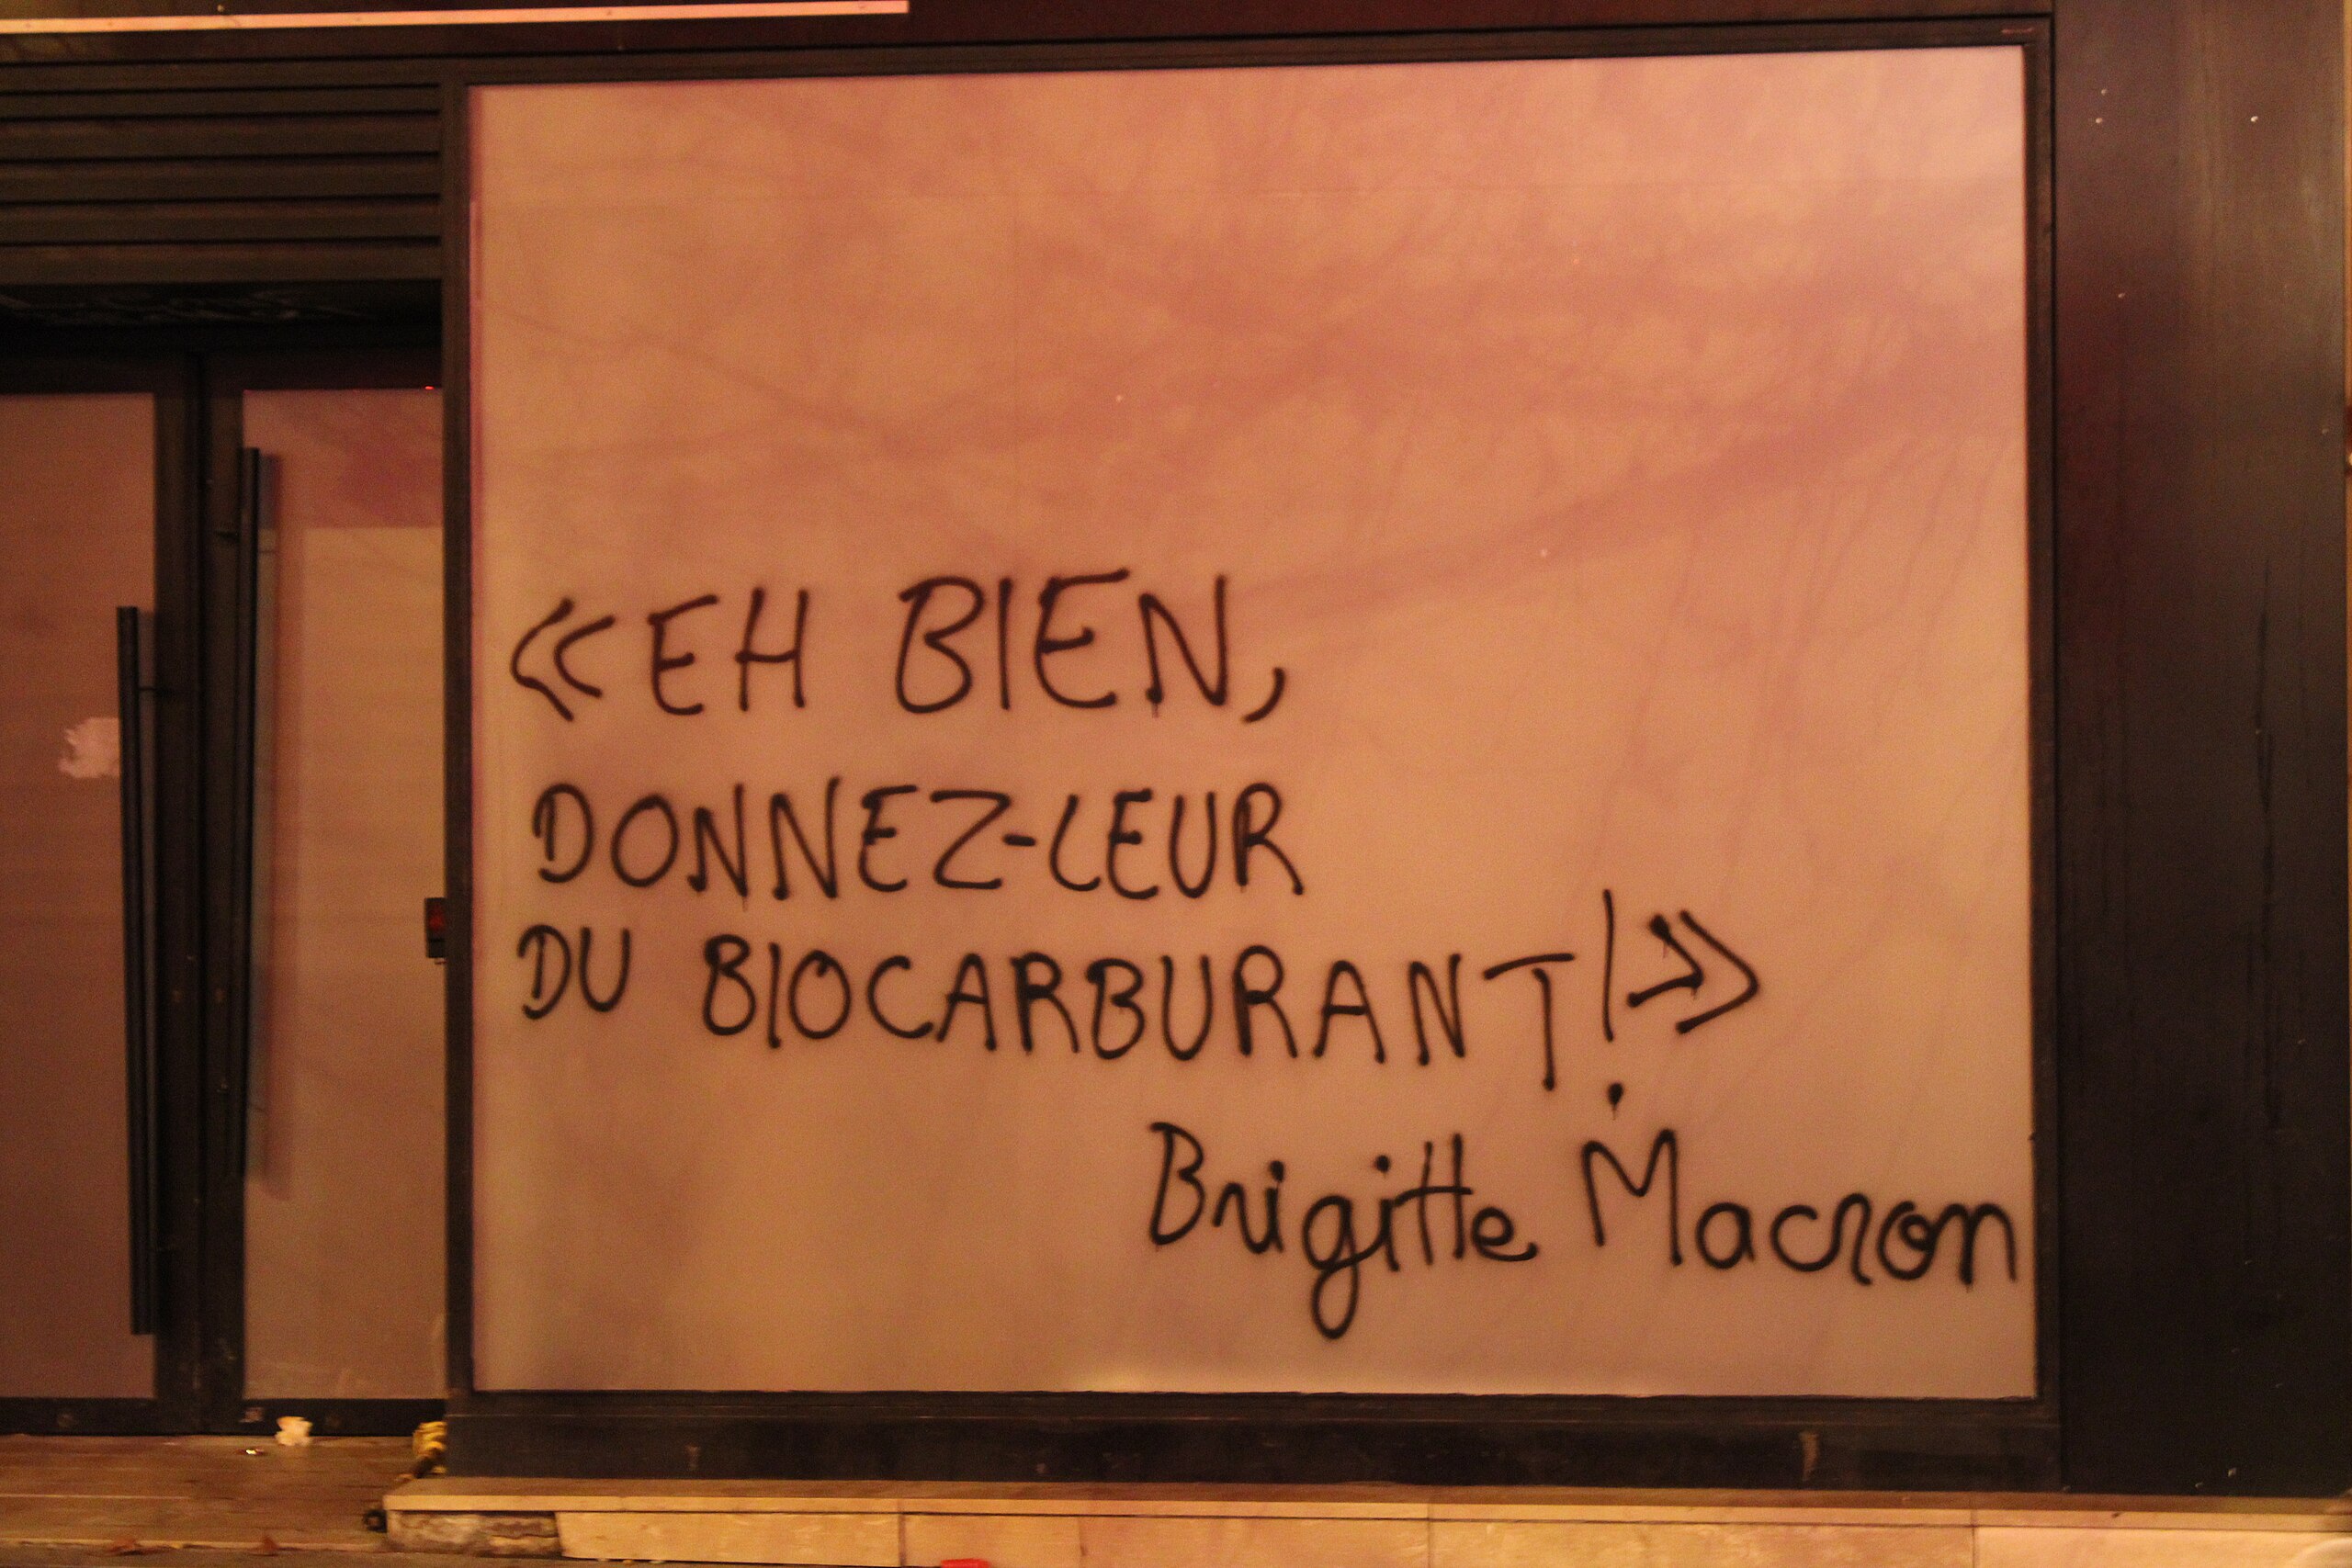 « EH BIEN,
DONNEZ-LEUR
DU BIOCARBURANT ! »
Brigitte Macron